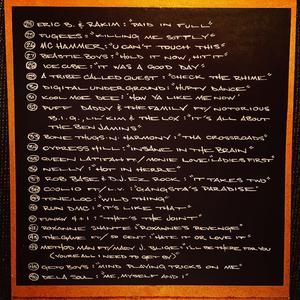 ERIC B. & RAKIM: "PAID IN FULL"
FUGEES: "KILLING ME SOFTLY"
MC HAMMER: "U CAN'T TOUCH THIS"
BEASTIE BOYS: "HOLD IT NOW, HIT IT"
ICE CUBE: "IT WAS A GOOD DAY"
A TRIBE CALLED QUEST: "CHECK THE RHIME"
DIGITAL UNDERGROUND: "HUMPTY DANCE"
KOOL MOE DEE: "HOW YA LIKE ME NOW"
PUFF DADDY & THE FAMILY FT/ NOTORIOUS
B.I.G., LIL' KIM & THE LOX: "IT'S ALL ABOUT
THE BENJAMINS"
BONE THUGS.N.HARMONY: "THA CROSSROADS"
CYPRESS HILL: "INSANE IN THE BRAIN"
QUEEN LATIFAH FT/ MONIE LOVE: "LADIES FIRST"
NELLY: "HOT IN HERRE"
ROB BASE & D.J. EZ ROCK: "IT TAKES TWO"
COOLIO FT/ L.V.: "GANGSTA'S PARADISE"
TONE LOC: "WILD THING"
RUN DMC: "IT'S LIKE THAT"
FUNKY 4+1: "THAT'S THE JOINT"
ROXANNE SHANTE: "ROXANNE'S REVENGE"
THE GAME FT/ 50 CENT: "HATE IT OR LOVE IT"
METHOD MAN FT/ MARY J. BLIGE: "I'LL BE THERE FOR YOU
(YOU'RE ALL I NEED TO GET BY)"
GETO BOYS: "MIND PLAYING TRICKS ON ME"
DE LA SOUL: "ME, MYSELF AND I"